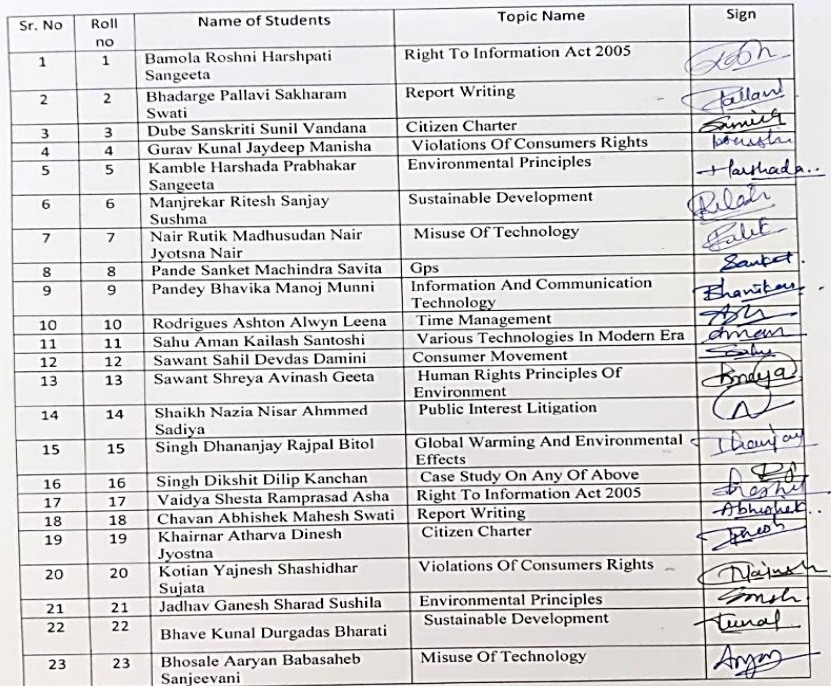 Sr. No Roll no Name of Students Topic Name Sign
1 1 Bamola Roshni Harshpati Sangeeta Right To Information Act 2005
2 2 Bhadarge Pallavi Sakharam Swati Report Writing Pallavi
3 3 Dube Sanskriti Sunil Vandana Citizen Charter
4 4 Gurav Kunal Jaydeep Manisha Violations Of Consumers Rights
5 5 Kamble Harshada Prabhakar Sangeeta Environmental Principles Harshada..
6 6 Manjrekar Ritesh Sanjay Sushma Sustainable Development
7 7 Nair Rutik Madhusudan Nair Jyotsna Nair Misuse Of Technology
8 8 Pande Sanket Machindra Savita Gps Sanket.
9 9 Pandey Bhavika Manoj Munni Information And Communication Technology
10 10 Rodrigues Ashton Alwyn Leena Time Management
11 11 Sahu Aman Kailash Santoshi Various Technologies In Modern Era Aman
12 12 Sawant Sahil Devdas Damini Consumer Movement
13 13 Sawant Shreya Avinash Geeta Human Rights Principles Of Environment
14 14 Shaikh Nazia Nisar Ahmmed Sadiya Public Interest Litigation
15 15 Singh Dhananjay Rajpal Bitol Global Warming And Environmental Effects
16 16 Singh Dikshit Dilip Kanchan Case Study On Any Of Above
17 17 Vaidya Shesta Ramprasad Asha Right To Information Act 2005
18 18 Chavan Abhishek Mahesh Swati Report Writing Abhishek..
19 19 Khairnar Atharva Dinesh Jyostna Citizen Charter
20 20 Kotian Yajnesh Shashidhar Sujata Violations Of Consumers Rights
21 21 Jadhav Ganesh Sharad Sushila Environmental Principles
22 22 Bhave Kunal Durgadas Bharati Sustainable Development Kunal
23 23 Bhosale Aaryan Babasaheb Sanjeevani Misuse Of Technology